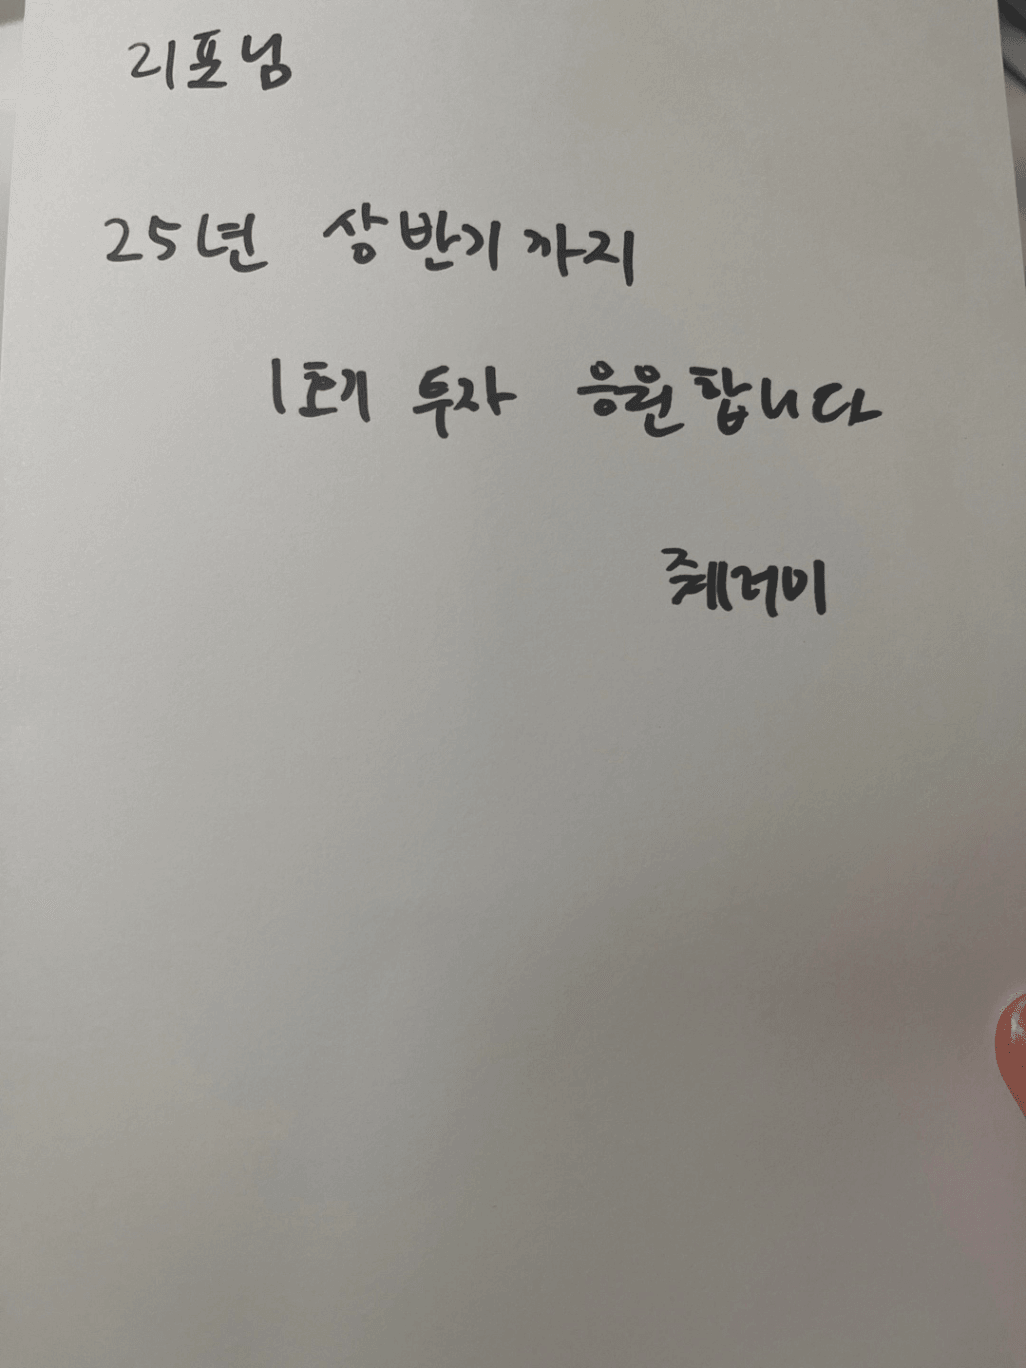 리포님
25년 상반기까지
1호기 투자 응원합니다
쮀러미